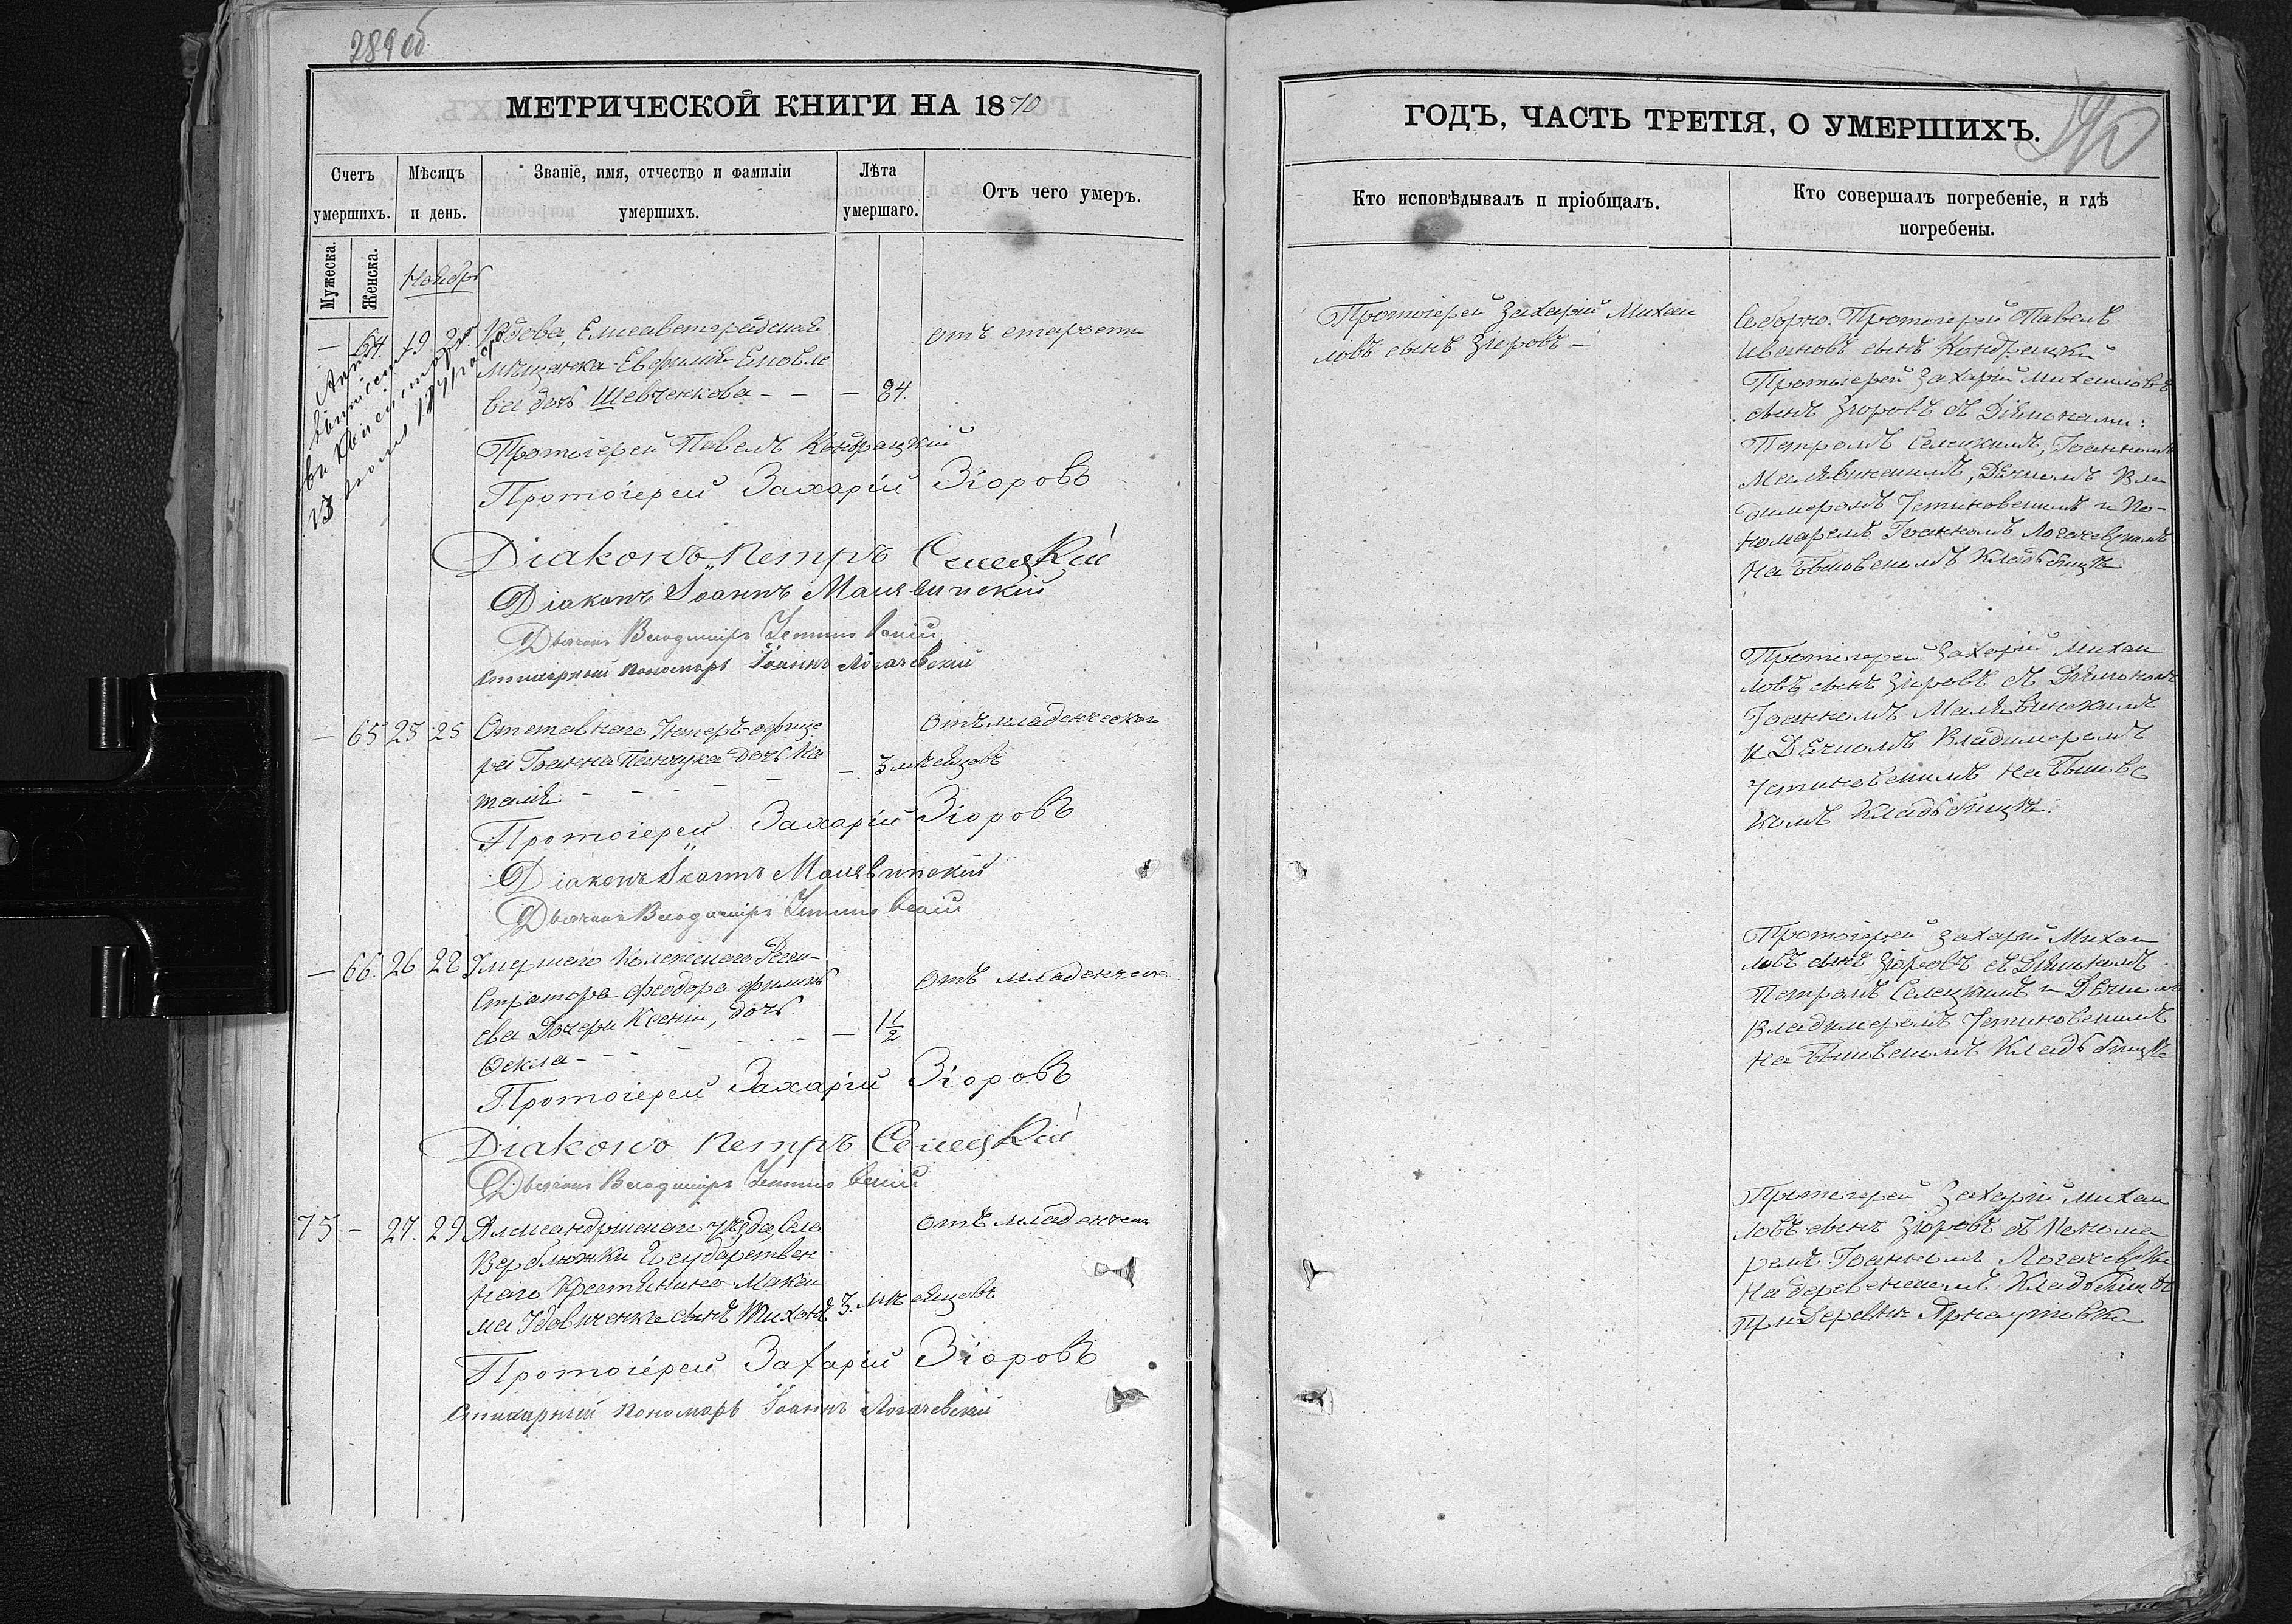 289 об
МЕТРИЧЕСКОЙ КНИГИ НА 1870
Счетъ умершихъ.
Мѣсяцъ и день.
Званіе, имя, отчество и фамиліи умершихъ.
Лѣта умершаго.
Отъ чего умеръ.
Мужеска.
Женска.
Ноябрь
— 64. 19
Вдова, Елисаветградская
мѣщанка Евфимія
ва дочь Шевченкова — — — 84.
отъ старости
Протоіерей Павелъ Кондрацкій
Протоіерей Захарій Зіоровъ
Діаконъ Петръ Селецкій
Діаконъ Іоаннъ Малявинскій
Дьячокъ Владиміръ Устиновскій
Стихарный пономарь Іоаннъ Логачевскій
— 65 23 25 Отставнаго Унтеръ-офице
ра Іоанна Панчука дочь На
талія — — — — — 3 мѣсяцовъ
отъ младенческой
Протоіерей Захарій Зіоровъ
Діаконъ Іоаннъ Малявинскій
Дьячокъ Владиміръ Устиновскій
— 66. 26 28 Умершаго Колежскаго Реги-
стратора Феодора
ева Дочери Ксеніи, дочь
Фекла — — — — — 1 1/2
отъ младенческ
Протоіерей Захарій Зіоровъ
Діаконъ Петръ Селецкій
Дьячокъ Владиміръ Устиновскій
75 — 27. 29 Александрійскаго уѣзда села
Верблюжки Государствен
наго Крестьянина Макси
ма Удовиченка сынъ Тихонъ 3. мѣсяцовъ
отъ младенческ
Протоіерей Захарій Зіоровъ
Стихарный пономарь Іоаннъ Логачевскій
ГОДЪ, ЧАСТЬ ТРЕТІЯ, О УМЕРШИХЪ.
290
Кто исповѣдывалъ и пріобщалъ.
Кто совершалъ погребеніе, и гдѣ погребены.
Протоіерей Захарій Михаи
ловъ сынъ Зіоровъ —
Соборно. Протоіерей Павелъ
Ивановъ сынъ Кондрацкій
Протоіерей Захарій Михаиловъ
сынъ Зіоровъ съ Діяконами:
Петромъ Селецкимъ, Іоанномъ
Малявинскимъ, Дячкомъ Вла
димеромъ Устиновскимъ и По-
номаремъ Іоанномъ Логачевскимъ
На Быковскомъ Кладьбищѣ
Протоіерей Захарій Михаи
ловъ сынъ Зіоровъ съ Діякономъ
Іоанномъ Малявинскимъ
и Дячкомъ Владимеромъ
Устиновскимъ на Быковс
комъ Кладьбищѣ.
Протоіерей Захарій Михаи
ловъ сынъ Зіоровъ съ Діякономъ
Петромъ Селецкимъ и Дячкомъ
Владимеромъ Устиновскимъ
на Быковскомъ Кладьбищѣ
Протоіерей Захарій Михаи
ловъ сынъ Зіоровъ съ Понома
ремъ Іоанномъ Логачевски
На деревенскомъ Кладьбищѣ
При Деревни Арнаутовки